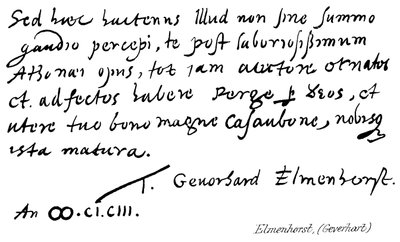 Sed haec hactenus Illud non sine summo
gaudio percepi, te post laboriosissimum
Athenaei opus, tot iam auctore ornatos
et adfectos habere Perge p Deos, et
utere tuo bono magne Casaubone, nobisq
ista matura.
T. Geuerhard Elmenhorst.
An CIƆ.CI.CIII.
Elmenhorst, (Geverhart)